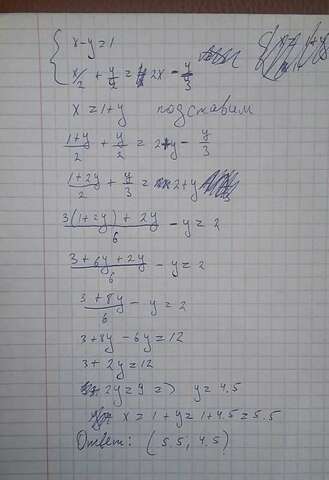 x-y=1
x/2 + y/2 = 2x - y/3
x = 1+y подставим
(1+y)/2 + y/2 = 2+y - y/3
(1+2y)/2 + y/3 = 2+y
(3(1+2y)+2y)/6 - y = 2
(3+6y+2y)/6 - y = 2
(3+8y)/6 - y = 2
3+8y-6y=12
3+2y=12
2y=9 => y=4.5
x = 1+y = 1+4.5 = 5.5
Ответ: (5.5, 4.5)